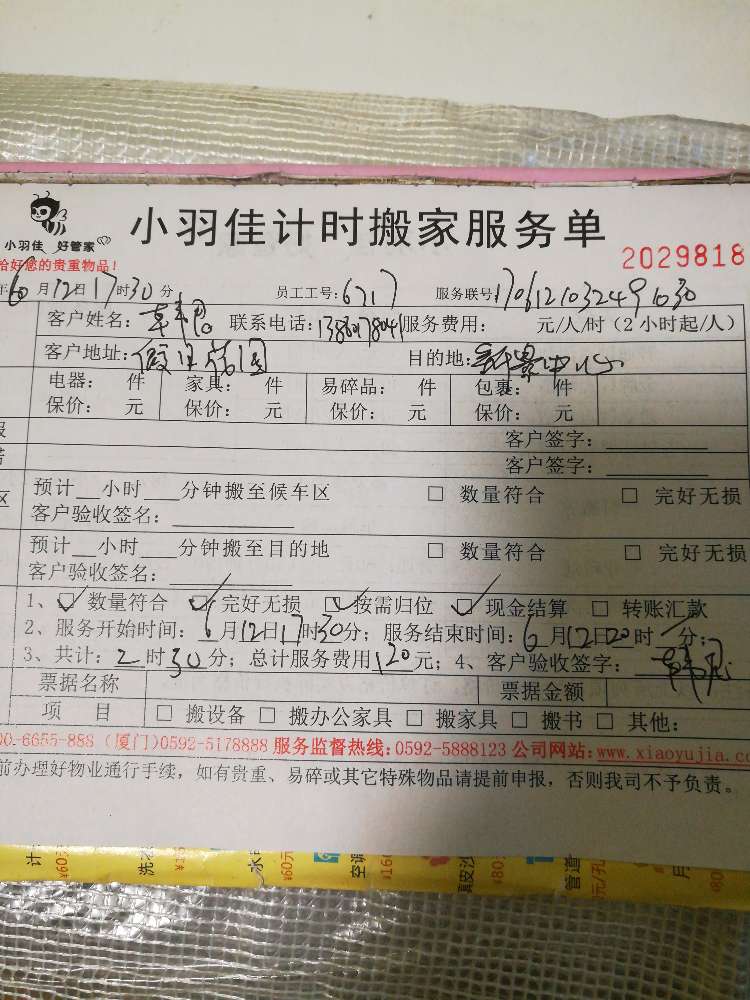 小羽佳 好管家
小羽佳计时搬家服务单
2029818
您的贵重物品!
6月12日17时30分 员工工号:6717 服务联号:1706121032491030
客户姓名: 联系电话: 服务费用: 元/人/时(2小时起/人)
客户地址: 目的地: 中心
电器: 件 家具: 件 易碎品: 件 包裹: 件
保价: 元 保价: 元 保价: 元 保价: 元
客户签字:
客户签字:
预计__小时__分钟搬至候车区 □ 数量符合 □ 完好无损
客户验收签名:
预计__小时__分钟搬至目的地 □ 数量符合 □ 完好无损
客户验收签名:
1、☑数量符合 ☑完好无损 ☑按需归位 ☑现金结算 □ 转账汇款
2、服务开始时间:6月12日17时30分;服务结束时间:6月12日20时 分;
3、共计:2时30分;总计服务费用120元;4、客户验收签字:
票据名称 票据金额
项 目 □ 搬设备 □ 搬办公家具 □ 搬家具 □ 搬书 □ 其他:
00-6655-888(厦门)0592-5178888 服务监督热线:0592-5888123 公司网站:www.xiaoyujia.co
前办理好物业通行手续,如有贵重、易碎或其它特殊物品请提前申报,否则我司不予负责。